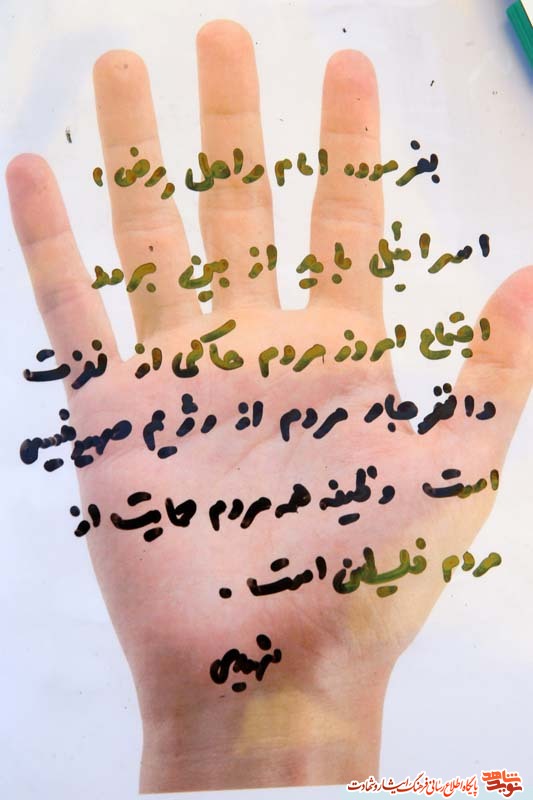 بفرموده امام راحل (رض)
اسرائیل باید از بین برود
اجتماع امروز مردم حاکی از نفرت
وانزجار مردم از رژیم صهیونیستی
است وظیفه همه مردم حمایت از
مردم فلسطین است .
نوید شاهد پایگاه اطلاع رسانی فرهنگ ایثار و شهادت